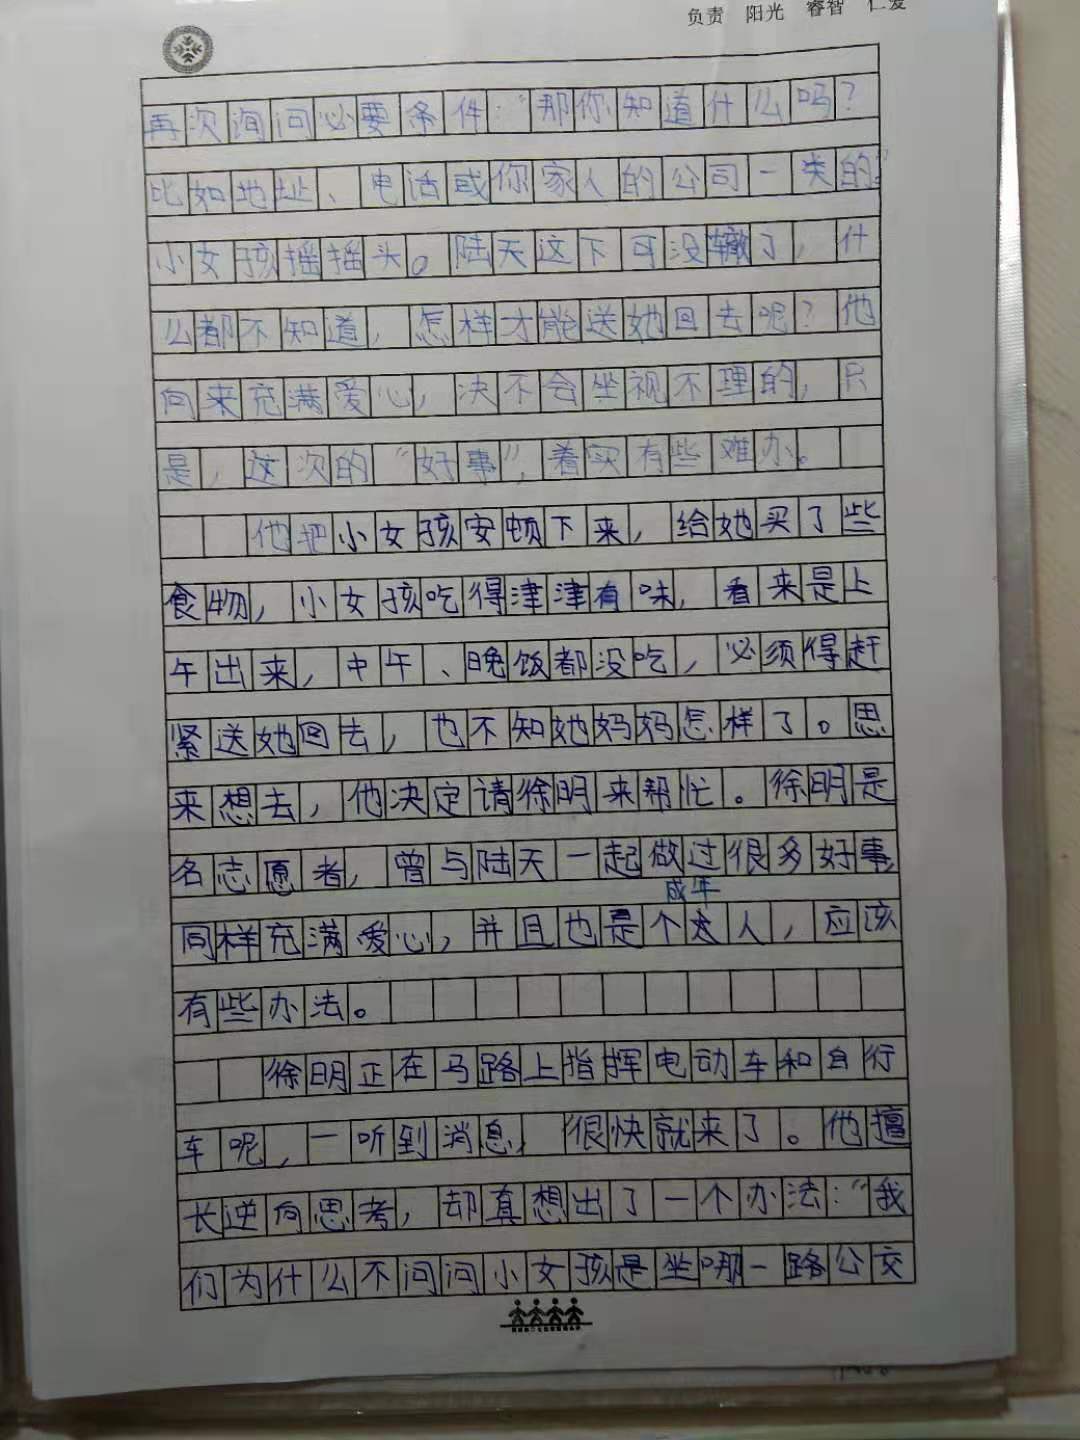 负责 阳光 睿智 仁爱
再次询问必要条件："那你知道什么吗？
比如地址、电话或你家人的公司一类的。"
小女孩摇摇头。陆天这下可没辙了，什
么都不知道，怎样才能送她回去呢？他
向来充满爱心，决不会坐视不理的，只
是，这次的"好事"，着实有些难办。
他把小女孩安顿下来，给她买了些
食物，小女孩吃得津津有味，看来是上
午出来，中午、晚饭都没吃，必须得赶
紧送她回去，也不知她妈妈怎样了。思
来想去，他决定请徐明来帮忙。徐明是
名志愿者，曾与陆天一起做过很多好事，
成年
同样充满爱心，并且也是个大人，应该
有些办法。
徐明正在马路上指挥电动车和自行
车呢，一听到消息，很快就来了。他擅
长逆向思考，却真想出了一个办法："我
们为什么不问问小女孩是坐哪一路公交